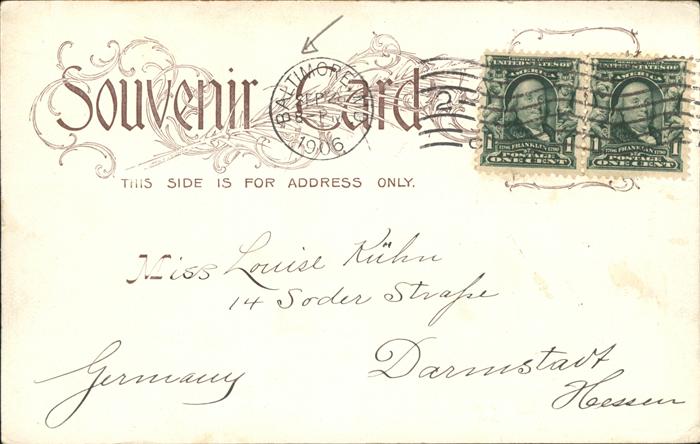 Souvenir Card
BALTIMORE, MD.
SEP
1906
2
UNITED STATES OF
AMERICA
1 FRANKLIN 1
POSTAGE
ONE CENT
UNITED STATES OF
AMERICA
1 FRANKLIN 1
POSTAGE
ONE CENT
THIS SIDE IS FOR ADDRESS ONLY.
Miss Louise Kühn
14 Soder Straße
Darmstadt
Hessen
Germany